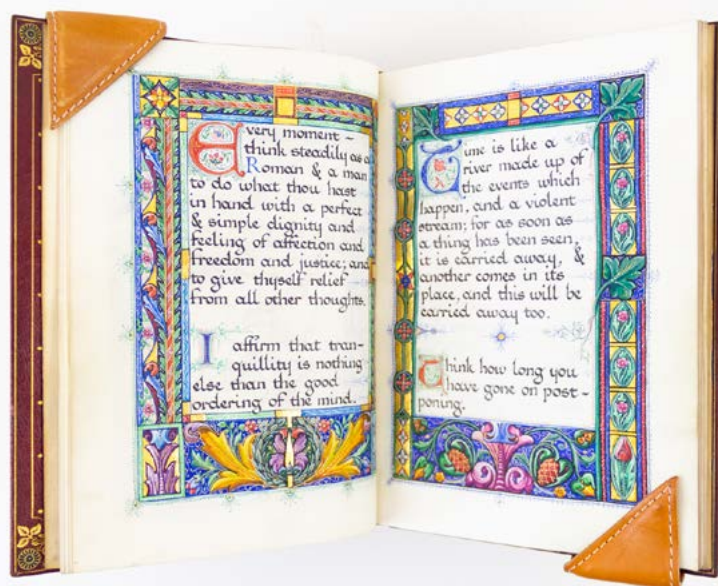 Every moment –
think steadily as a
Roman & a man
to do what thou hast
in hand with a perfect
& simple dignity and
feeling of affection and
freedom and justice; and
to give thyself relief
from all other thoughts.
I affirm that tran-
quillity is nothing
else than the good
ordering of the mind.
Time is like a
river made up of
the events which
happen, and a violent
stream; for as soon as
a thing has been seen,
it is carried away, &
another comes in its
place, and this will be
carried away too.
Think how long you
have gone on post-
poning.